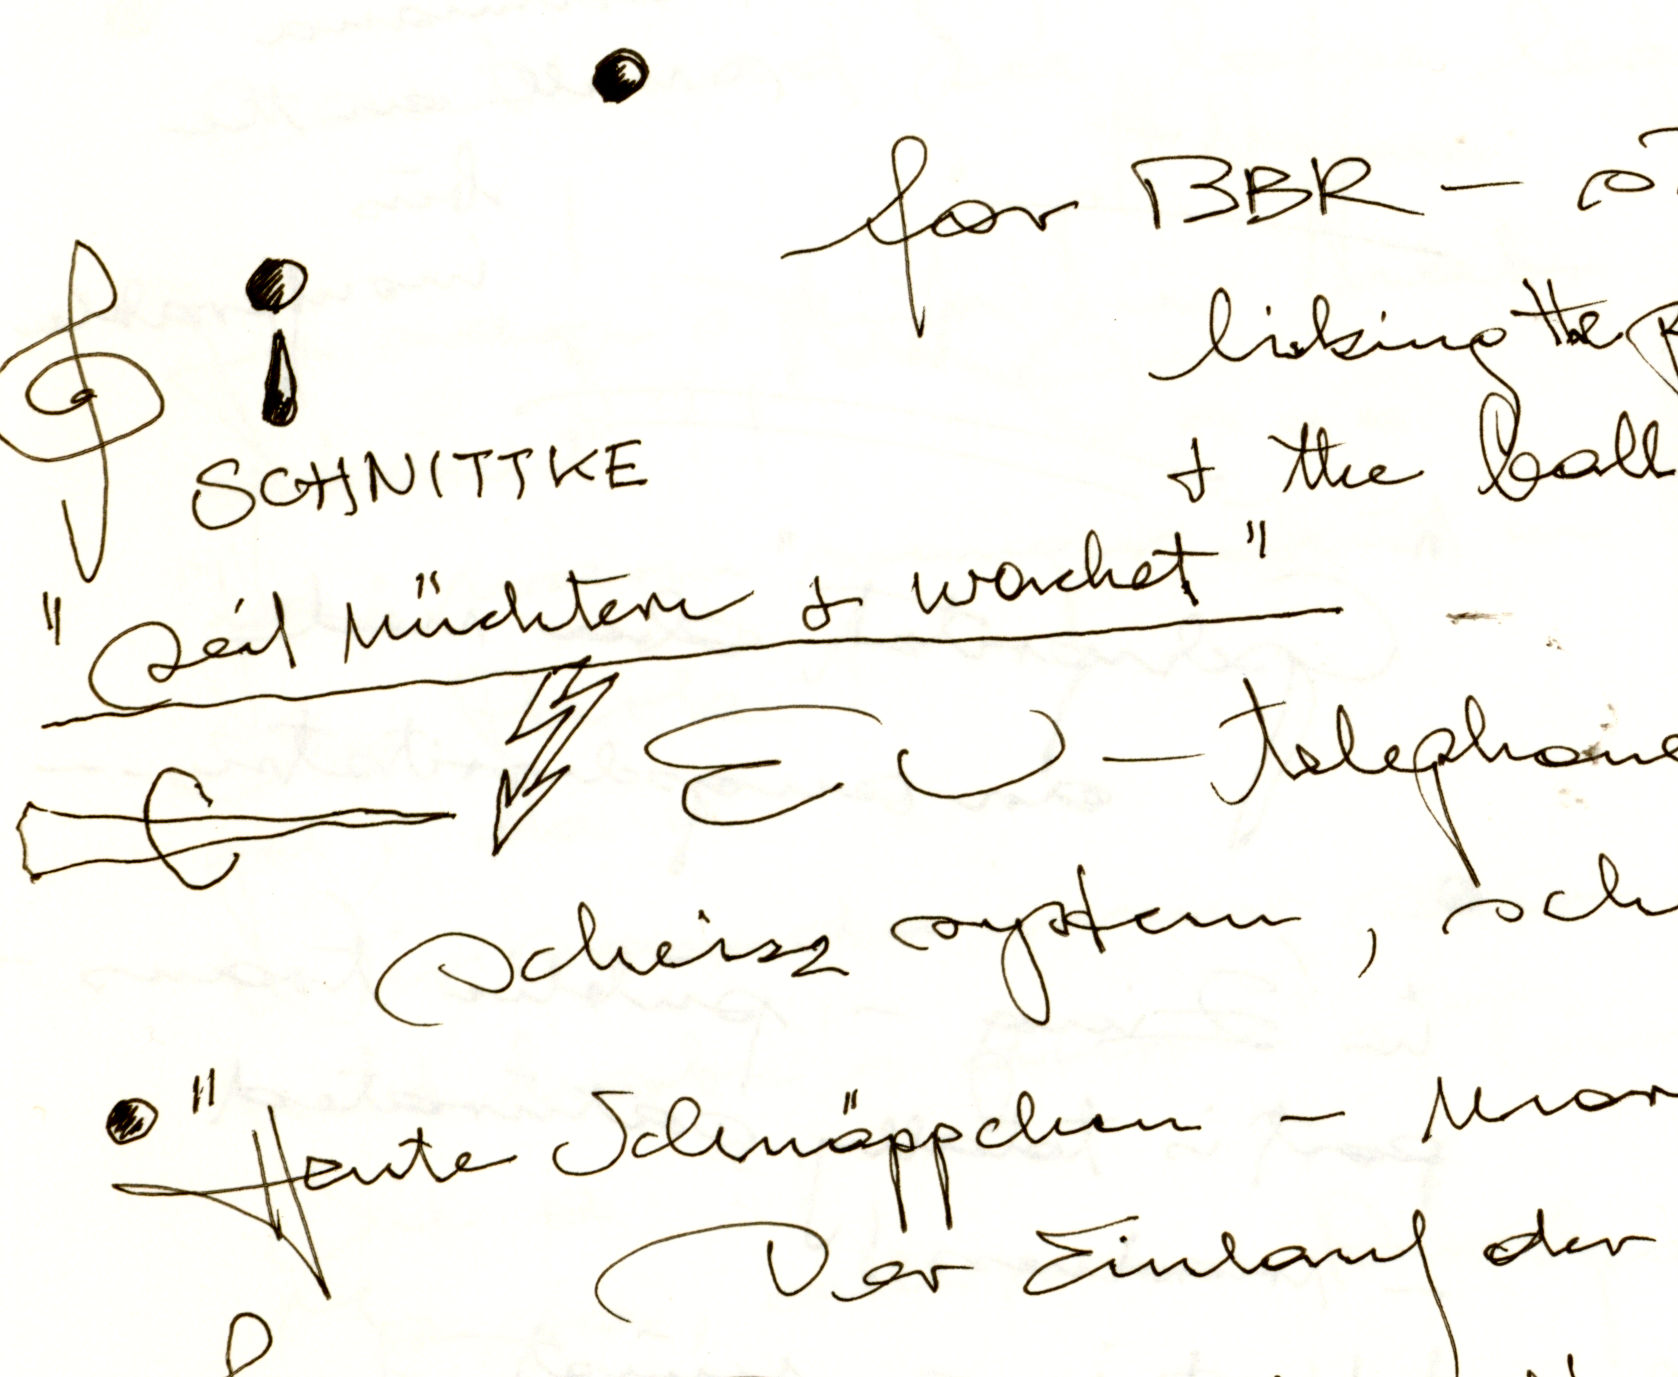 for BBR –
linking the
& the ball
SCHNITTKE
"seid nüchtern & wachet"
EU – telephone
scheisz system, sch
"Heute Schnäppchen –
Der Einlauf der